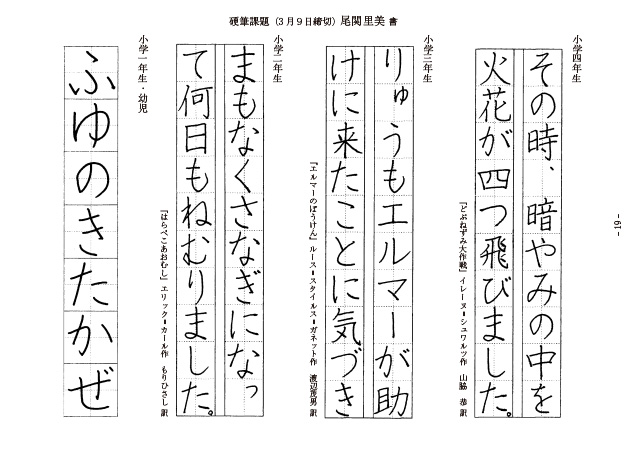 硬筆課題（3月9日締切）尾関里美 書
小学四年生
その時、暗やみの中を
火花が四つ飛びました。
『どぶねずみ大作戦』イレーヌ=シュワルツ作 山脇 恭 訳
小学三年生
りゅうもエルマーが助
けに来たことに気づき
『エルマーのぼうけん』ルース=スタイルス=ガネット作 渡辺茂男 訳
小学二年生
まもなくさなぎになっ
て何日もねむりました。
『はらぺこあおむし』エリック=カール作 もりひさし 訳
小学一年生・幼児
ふゆのきたかぜ
- 19 -